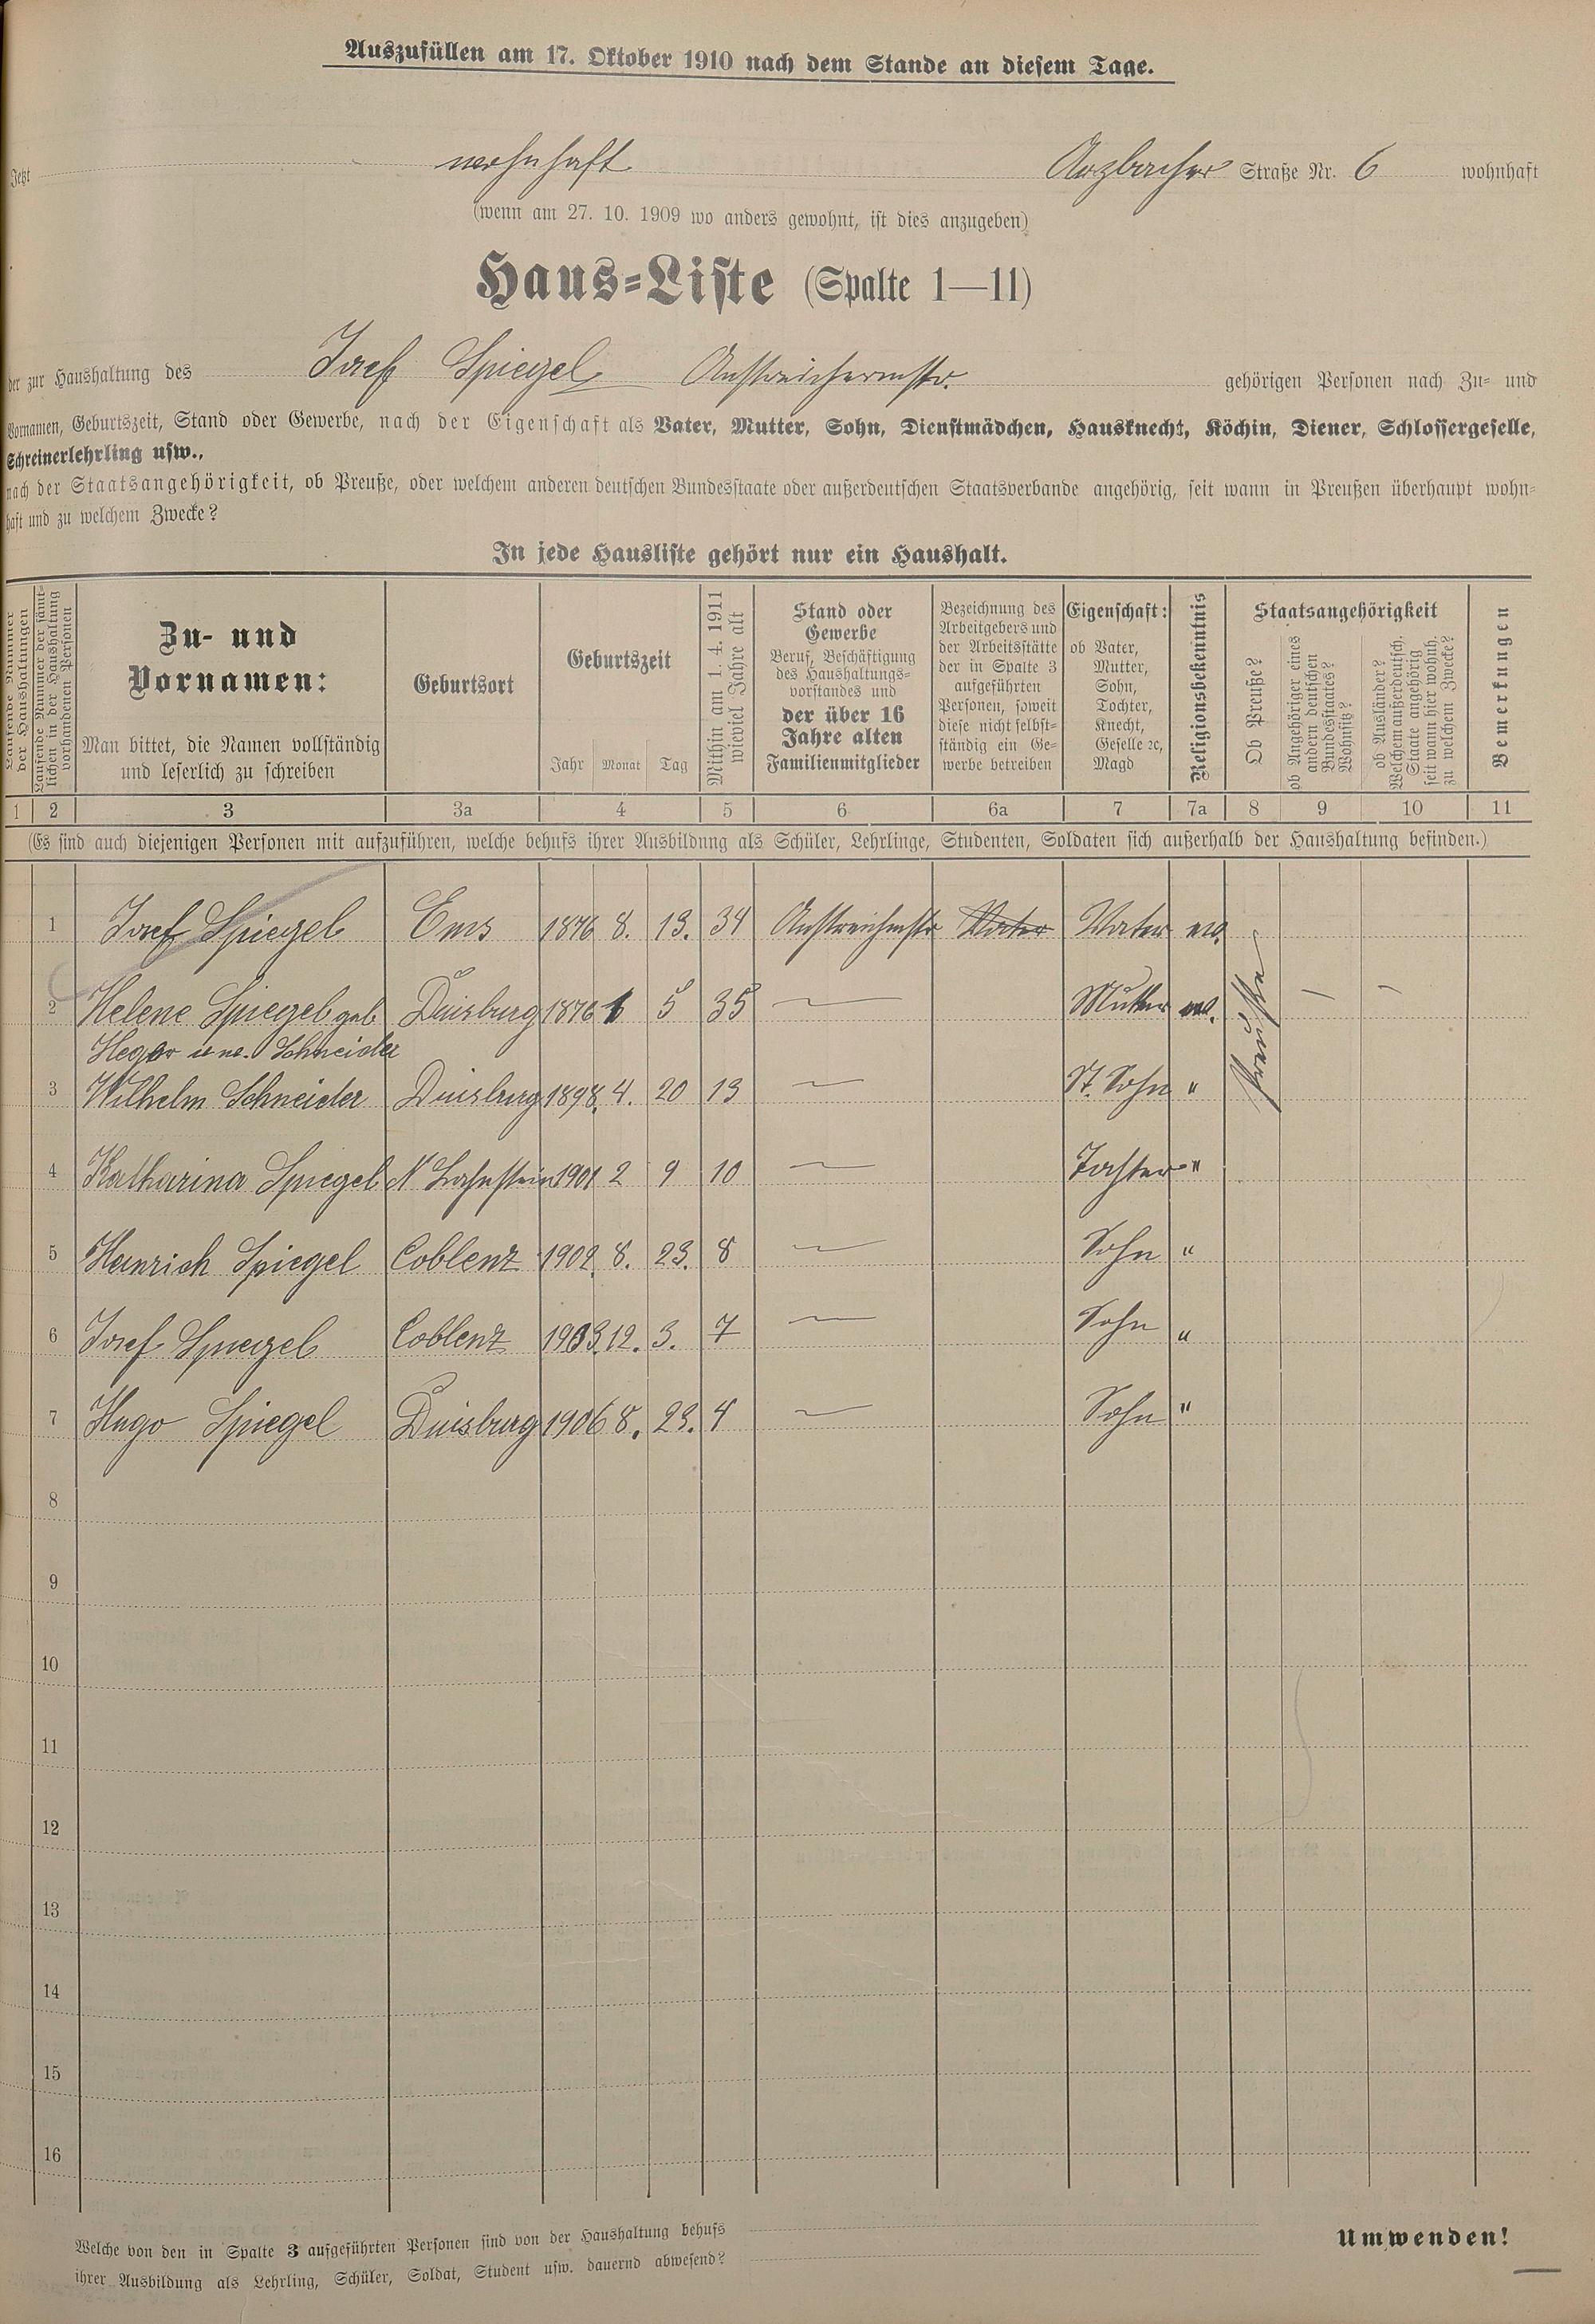 Auszufüllen am 17. Oktober 1910 nach dem Stande an diesem Tage.
Jetzt wohnhaft Arzbacher Straße Nr. 6 wohnhaft
(wenn am 27. 10. 1909 wo anders gewohnt, ist dies anzugeben)
Haus-Liste (Spalte 1—11)
der zur Haushaltung des Josef Spiegel Anstreichermstr. gehörigen Personen nach Zu- und
Vornamen, Geburtszeit, Stand oder Gewerbe, nach der Eigenschaft als Vater, Mutter, Sohn, Dienstmädchen, Hausknecht, Köchin, Diener, Schlossergeselle,
Schreinerlehrling usw.,
nach der Staatsangehörigkeit, ob Preuße, oder welchem anderen deutschen Bundesstaate oder außerdeutschen Staatsverbande angehörig, seit wann in Preußen überhaupt wohn-
haft und zu welchem Zwecke?
In jede Hausliste gehört nur ein Haushalt.
Laufende Nummer
der Haushaltungen
Laufende Nummer der sämt-
lichen in der Haushaltung
vorhandenen Personen
Zu- und
Vornamen:
Man bittet, die Namen vollständig
und leserlich zu schreiben
Geburtsort
Geburtszeit
Jahr Monat Tag
Mithin am 1. 4. 1911
wieviel Jahre alt
Stand oder
Gewerbe
Beruf, Beschäftigung
des Haushaltungs-
vorstandes und
der über 16
Jahre alten
Familienmitglieder
Bezeichnung des
Arbeitgebers und
der Arbeitsstätte
der in Spalte 3
aufgeführten
Personen, soweit
diese nicht selbst-
ständig ein Ge-
werbe betreiben
Eigenschaft:
ob Vater,
Mutter,
Sohn,
Tochter,
Knecht,
Geselle ꝛc,
Magd
Religionsbekenntnis
Staatsangehörigkeit
Ob Preuße?
ob Angehöriger eines
andern deutschen
Bundesstaates?
Wohnsitz?
ob Ausländer?
Welchem außerdeutsch.
Staate angehörig
seit wann hier wohnh.
zu welchem Zwecke?
Bemerkungen
1 2 3 3a 4 5 6 6a 7 7a 8 9 10 11
(Es sind auch diejenigen Personen mit aufzuführen, welche behufs ihrer Ausbildung als Schüler, Lehrlinge, Studenten, Soldaten sich außerhalb der Haushaltung befinden.)
1 Josef Spiegel Ems 1876 8. 13. 34 Anstreichmstr Vater Vater
2 Helene Spiegel geb Duisburg 1876 1 5 35 — Mutter Preuße — —
Schneider
3 Wilhelm Schneider Duisburg 1898. 4. 20 13 — St. Sohn "
4 Katharina Spiegel N Lahnstein 1901 2 9 10 — Tochter "
5 Heinrich Spiegel Coblenz 1902. 8. 23. 8 — Sohn "
6 Josef Spiegel Coblenz 1903. 12. 3. 7 — Sohn "
7 Hugo Spiegel Duisburg 1906 8. 23. 4 — Sohn "
8
9
10
11
12
13
14
15
16
Welche von den in Spalte 3 aufgeführten Personen sind von der Haushaltung behufs
ihrer Ausbildung als Lehrling, Schüler, Soldat, Student usw. dauernd abwesend?
Umwenden!